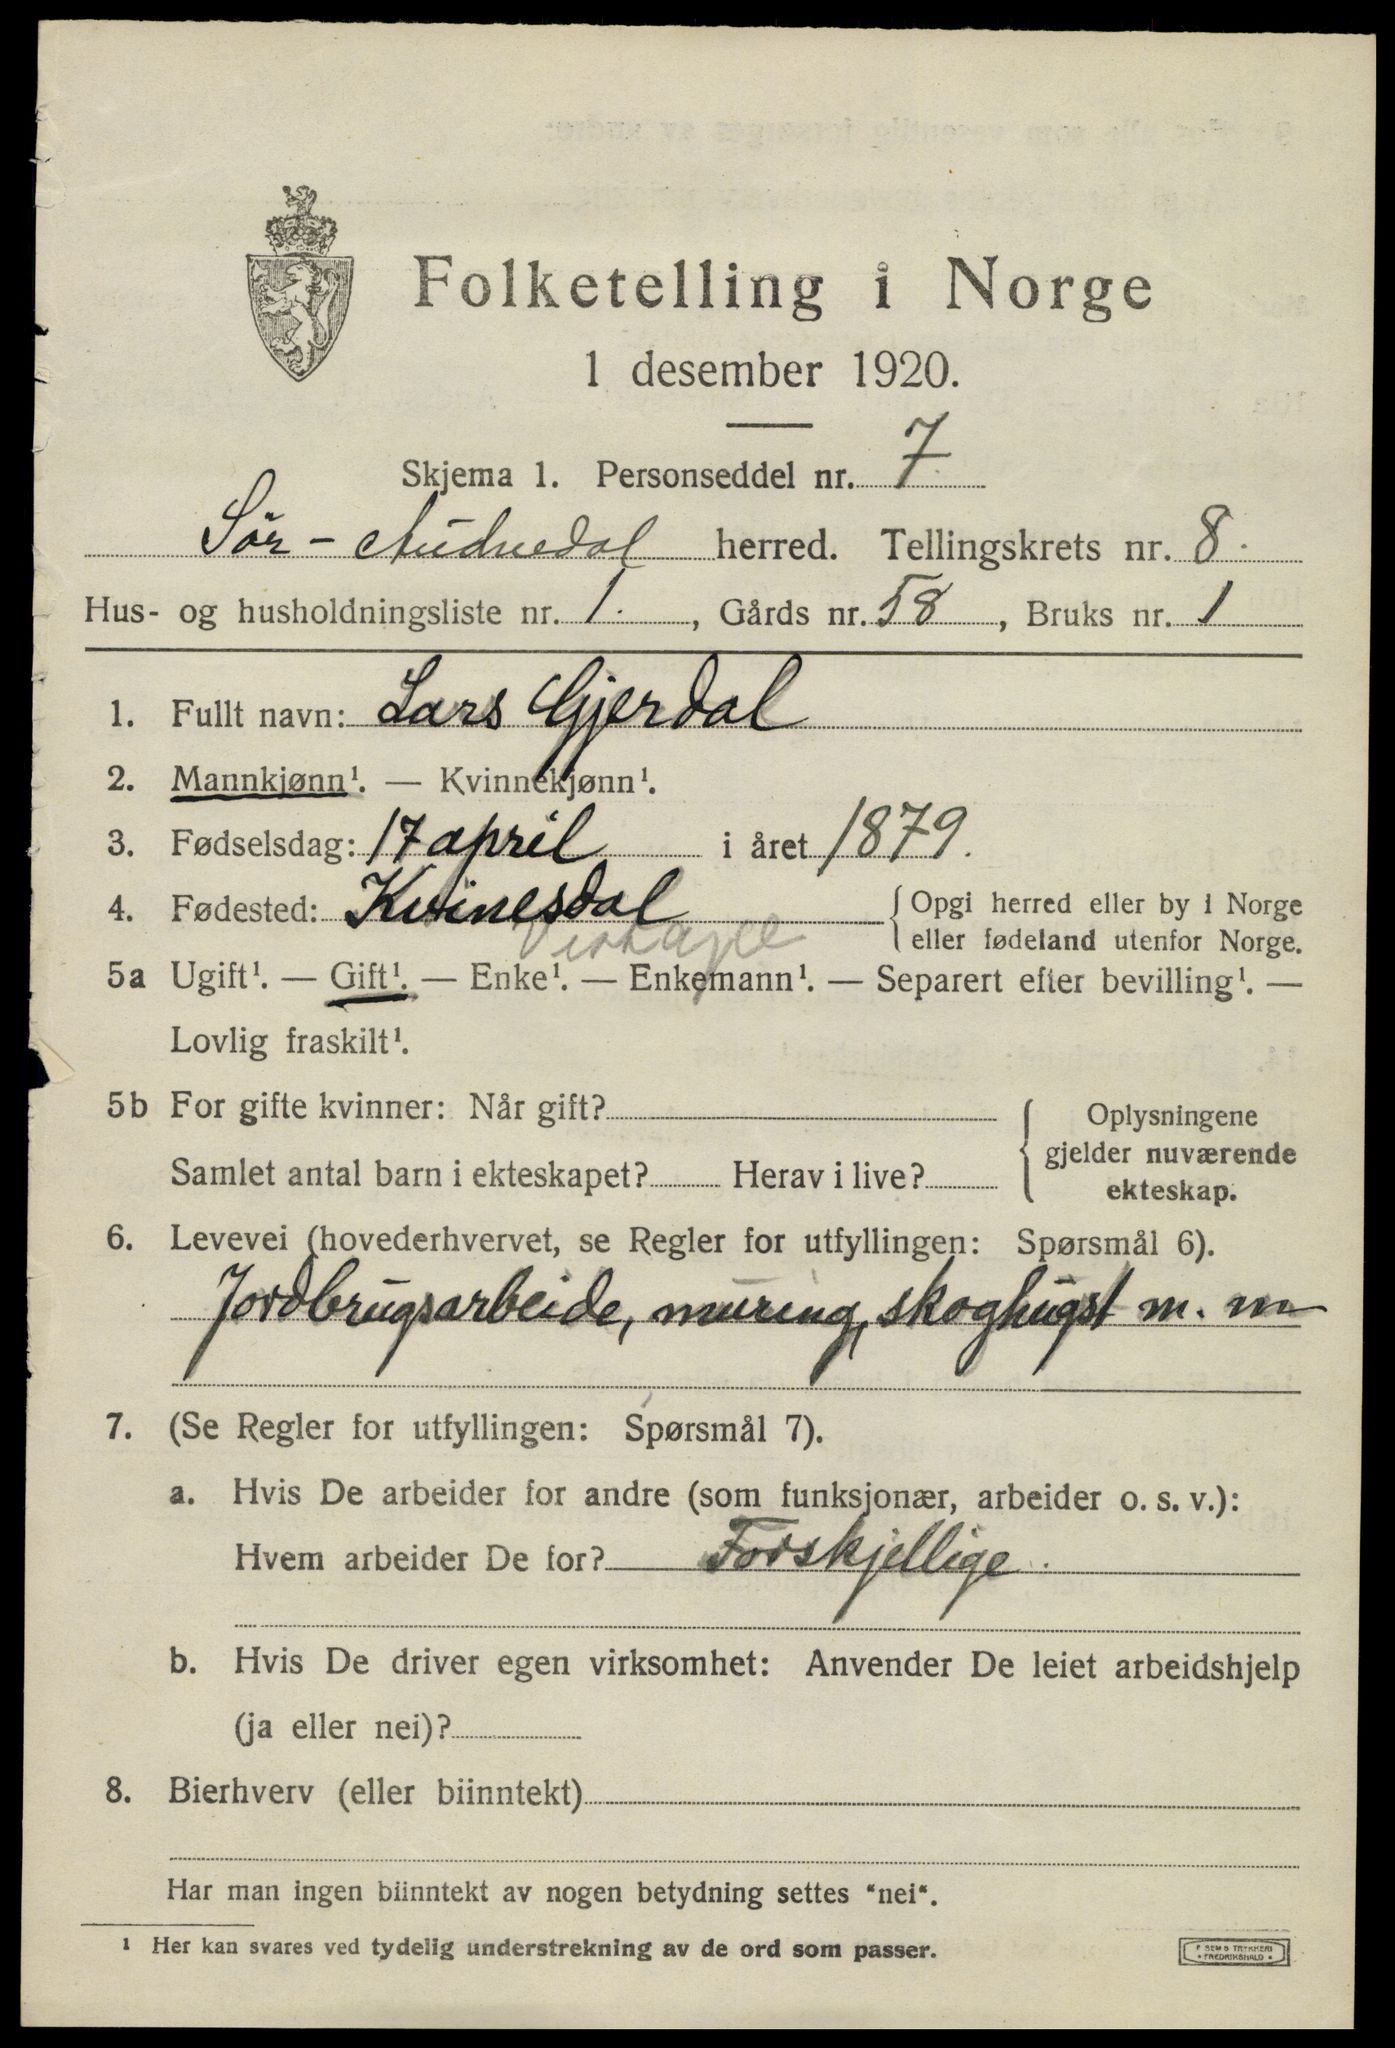 Folketelling i Norge
1 desember 1920.
Skjema 1. Personseddel nr. 7
Sör-Audnedal herred. Tellingskrets nr. 8.
Hus- og husholdningsliste nr. 1. , Gårds nr. 58 , Bruks nr. 1
1. Fullt navn: Lars Gjerdal
2. Mannkjønn¹. — Kvinnekjønn¹.
3. Fødselsdag: 17 april i året 1879.
4. Fødested: Kvinesdal { Opgi herred eller by i Norge
eller fødeland utenfor Norge.
5a Ugift¹. — Gift¹. — Enke¹. — Enkemann¹. — Separert efter bevilling¹. —
Lovlig fraskilt¹.
5b For gifte kvinner: Når gift? { Oplysningene
gjelder nuværende
Samlet antal barn i ekteskapet? Herav i live?
ekteskap.
6. Levevei (hovederhvervet, se Regler for utfyllingen: Spørsmål 6).
Jordbrugsarbeide, muring, skoghugst m. m
7. (Se Regler for utfyllingen: Spørsmål 7).
a. Hvis De arbeider for andre (som funksjonær, arbeider o. s. v.):
Hvem arbeider De for? Forskjellige.
b. Hvis De driver egen virksomhet: Anvender De leiet arbeidshjelp
(ja eller nei)?
8. Bierhverv (eller biinntekt)
Har man ingen biinntekt av nogen betydning settes "nei".
¹ Her kan svares ved tydelig understrekning av de ord som passer.
SEMS TRYKKERI
FREDRIKSHALD